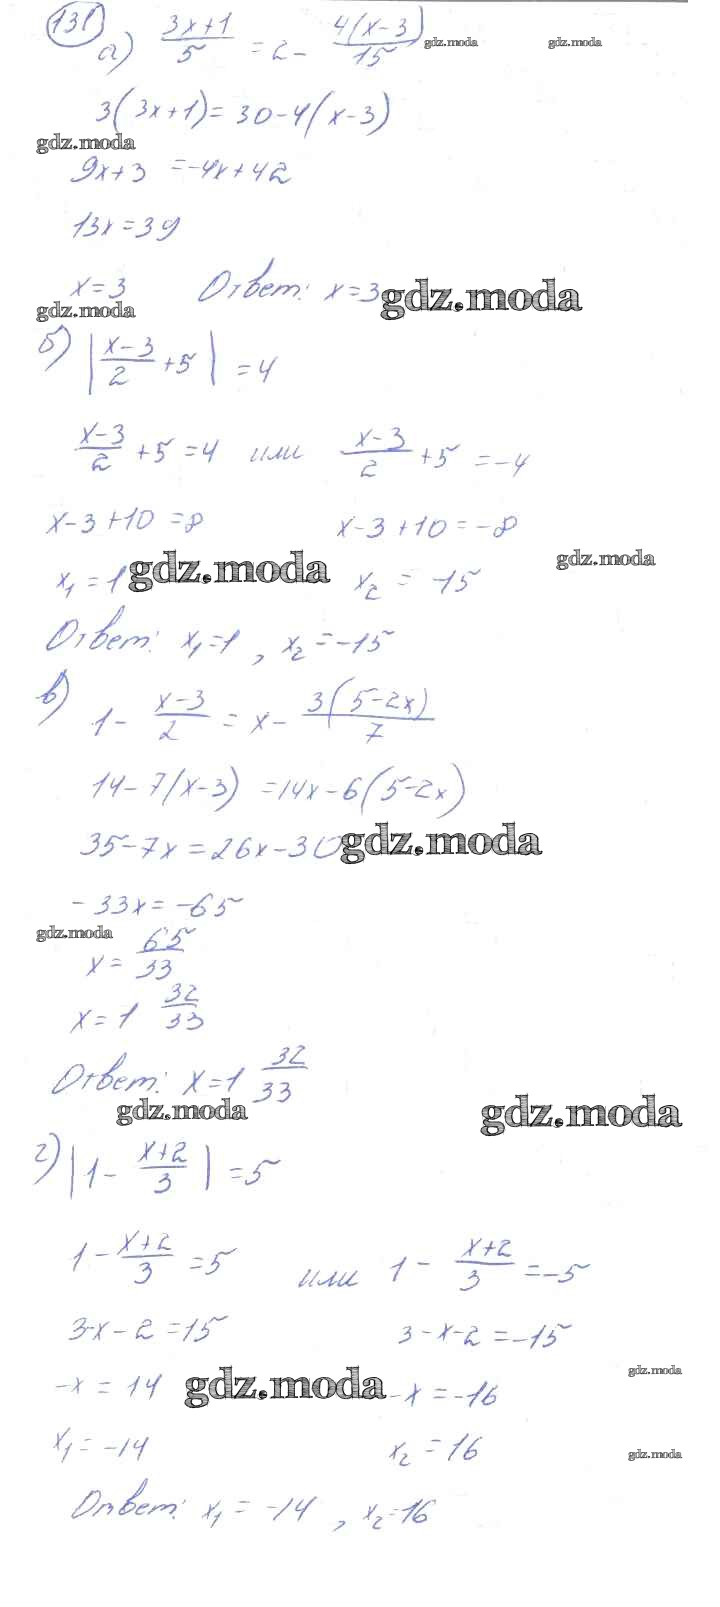 131
а) (3x+1)/5 = 2 - 4(x-3)/15 gdz.moda gdz.moda
3(3x+1) = 30-4(x-3)
gdz.moda
9x+3 = -4x+42
13x = 39
x=3 Ответ: x=3 gdz.moda
gdz.moda
б) |(x-3)/2 +5| = 4
(x-3)/2 +5 = 4 или (x-3)/2 +5 = -4
x-3+10 = 8 x-3+10 = -8
x₁ = 1 gdz.moda x₂ = -15 gdz.moda
Ответ: x₁=1, x₂=-15
в) 1 - (x-3)/2 = x - 3(5-2x)/7
14-7(x-3) = 14x-6(5-2x)
35-7x = 26x-30 gdz.moda
-33x = -65
gdz.moda
x = 65/33
x = 1 32/33
Ответ: x=1 32/33
gdz.moda gdz.moda
г) |1 - (x+2)/3| = 5
1 - (x+2)/3 = 5 или 1 - (x+2)/3 = -5
3-x-2 = 15 3-x-2 = -15
gdz.moda
-x = 14 gdz.moda -x = -16
x₁ = -14 x₂ = 16 gdz.moda
Ответ: x₁ = -14, x₂=16